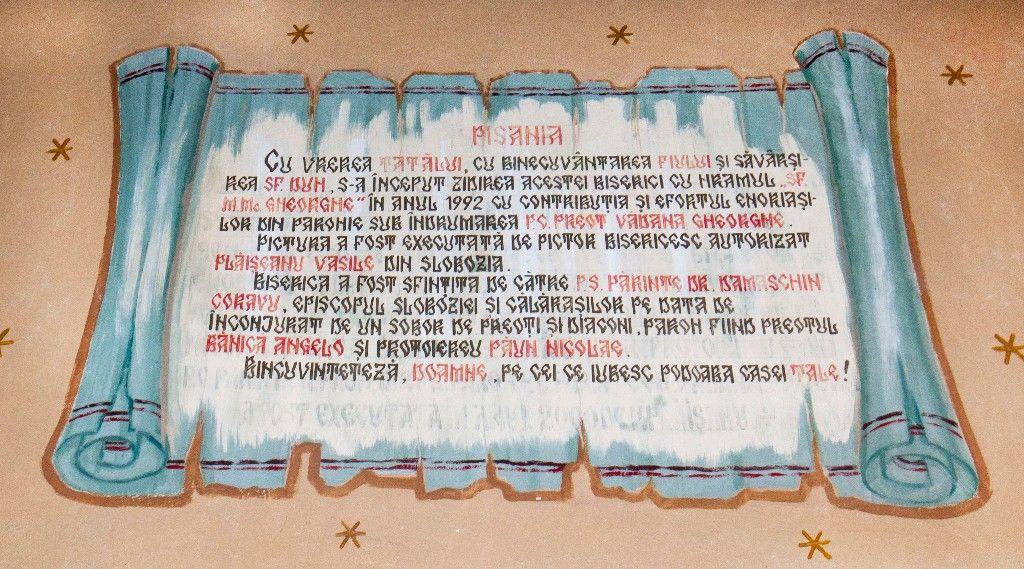 PISANIA
CU VREREA TATĂLUI, CU BINECUVÂNTAREA FIULUI ȘI SĂVÂRȘI-
REA SF. DUH, S-A ÎNCEPUT ZIDIREA ACESTEI BISERICI CU HRAMUL „SF.
M.Mc. GHEORGHE" ÎN ANUL 1992 CU CONTRIBUTIA ȘI EFORTUL ENORIAȘI-
LOR DIN PAROHIE SUB ÎNDRUMAREA P.C. PREOT VĂDANA GHEORGHE.
PICTURA A FOST EXECUTATĂ DE PICTOR BISERICESC AUTORIZAT
PLĂIȘEANU VASILE DIN SLOBOZIA.
BISERICA A FOST SFINTITĂ DE CĂTRE P.S. PĂRINTE DR. DAMASCHIN
CORAVU, EPISCOPUL SLOBOZIEI ȘI CĂLĂRAȘILOR PE DATA DE
ÎNCONJURAT DE UN SOBOR DE PREOTI ȘI DIACONI, PAROH FIIND PREOTUL
BĂNICA ANGELO ȘI PROTOIEREU PĂUN NICOLAE.
BINCUVINTETEZĂ, DOAMNE, PE CEI CE IUBESC PODOABA CASEI TALE!